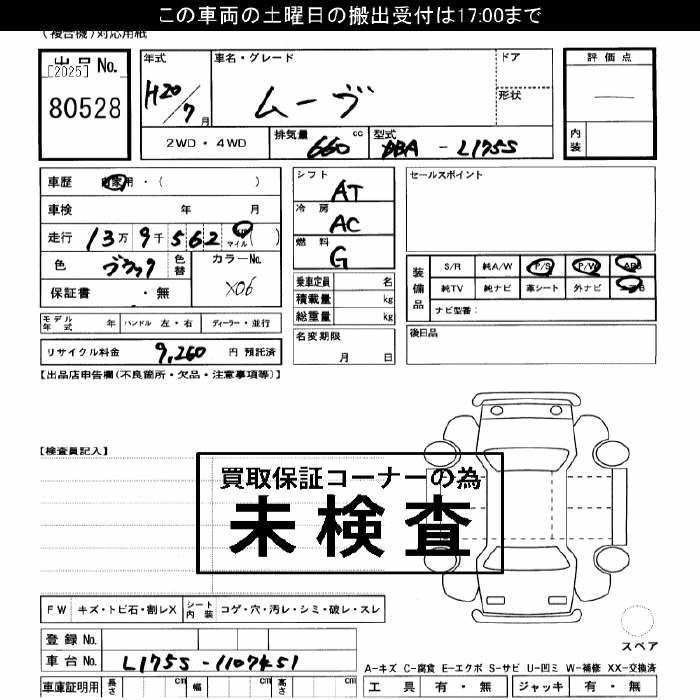 この車両の土曜日の搬出受付は17:00まで
(複合機)対応用紙
出品 No.
[2025]
80528
年式
H20/7月
車名・グレード
ムーヴ
ドア
形状
評価点
内装
2WD・4WD
排気量 660 cc
型式 DBA - L175S
車歴 自家用・( )
車検 年 月
走行 13万9千562 km マイル ( )
色 ブラック
色替
カラーNo.
X06
保証書 ・ 無
モデル年式 年 ハンドル 左・右 ディーラー・並行
リサイクル料金 9,260 円 預託済
シフト AT
冷房 AC
燃料 G
乗車定員 名
積載量 kg
総重量 kg
名変期限
月 日
セールスポイント
装備品
S/R 純A/W P/S P/W ABS
純TV 純ナビ 革シート 外ナビ
ナビ型番:
後日品
【出品店申告欄(不良箇所・欠品・注意事項等)】
【検査員記入】
買取保証コーナーの為
未検査
FW キズ・トビ石・割レX シート内装 コゲ・穴・汚レ・シミ・破レ・スレ
登録 No.
車台 No. L175S-1107451
車庫証明用 長さ cm 幅 cm 高さ cm
スペア
A-キズ C-腐食 E-エクボ S-サビ U-凹ミ W-補修 XX-交換済
工具 有・無 ジャッキ 有・無